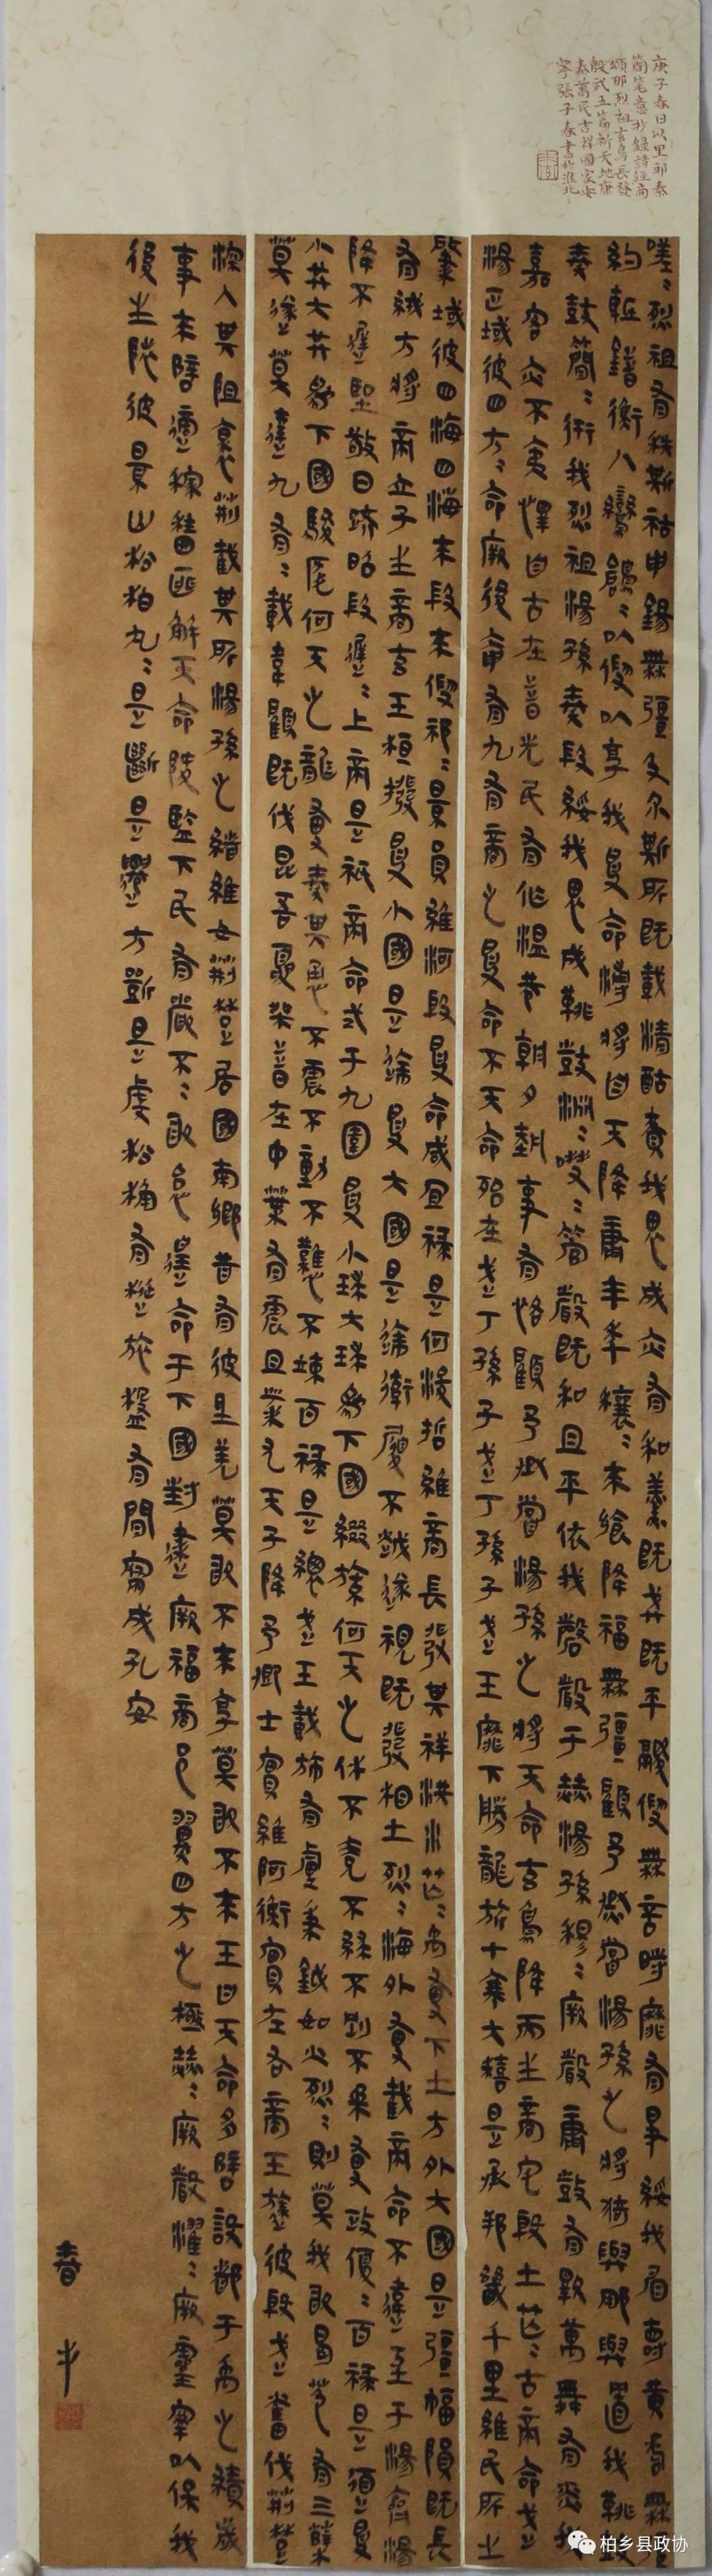 庚子春日以里耶秦
簡筆意抄錄詩經商
頌那烈祖玄鳥長發
殷武五篇祈天地康
泰萬民吉祥國家安
寧張子春書於淮北
嗟〻烈祖有秩斯祜申錫無彊及尔斯所既載清酤賚我思成亦有和羹既戒既平鬷假無言時靡有爭綏我眉壽黃耇無
約軧錯衡八鸞鶬〻以假以享我受命溥將自天降康豐年穰〻來飨降福無疆顧予烝嘗湯孫之將猗與那與置我鞉鼓
奏鼓簡〻衎我烈祖湯孫奏假綏我思成鞉鼓淵〻嘒〻管聲既和且平依我磬聲于赫湯孫穆〻厥聲庸鼓有斁萬舞有奕我
嘉客亦不夷懌自古在昔先民有作溫恭朝夕執事有恪顧予烝嘗湯孫之將天命玄鳥降而生商宅殷土芒〻古帝命武
湯正域彼四方〻命厥後奄有九有商之受命不天命殆在武丁孫子武丁孫子武王靡不勝龍旂十乘大糦是承邦畿千里維民所止
肇域彼四海四海來假來假祁〻景員維河殷受命咸宜祿是何濬哲維商長發其祥洪水芒〻禹敷下土方外大國是疆幅隕既長
有娀方將帝立子生商玄王桓撥受小國是達受大國是達率履不越遂視既發相土烈〻海外有截帝命不違至于湯齊湯
降不遲聖敬日躋昭假遲〻上帝是祗帝命式于九圍受小球大球為下國綴旒何天之休不競不絿不剛不柔敷政優〻百祿是遒受
小共大共為下國駿厖何天之龍敷奏其勇不震不動不戁不竦百祿是總武王載旆有虔秉鉞如火烈〻則莫我敢曷苞有三蘗
莫遂莫達九有〻載韋顧既伐昆吾夏桀昔在中葉有震且業允天子降予卿士實維阿衡實左右商王撻彼殷武奮伐荊楚
深入其阻裒荊截其所湯孫之緒維女荊楚居國南鄉昔有彼氐羌莫敢不來享莫敢不來王曰天命多辟設都于禹之績歲
事來辟適稼穡匪解天命降監下民有嚴不〻敢怠遑命于下國封建厥福商邑翼四方之極赫〻厥聲濯〻厥靈寧以保我
後生陟彼景山松柏丸〻是斷是遷方斲是虔松桷有梴旅楹有閒寢成孔安
柏乡县政协